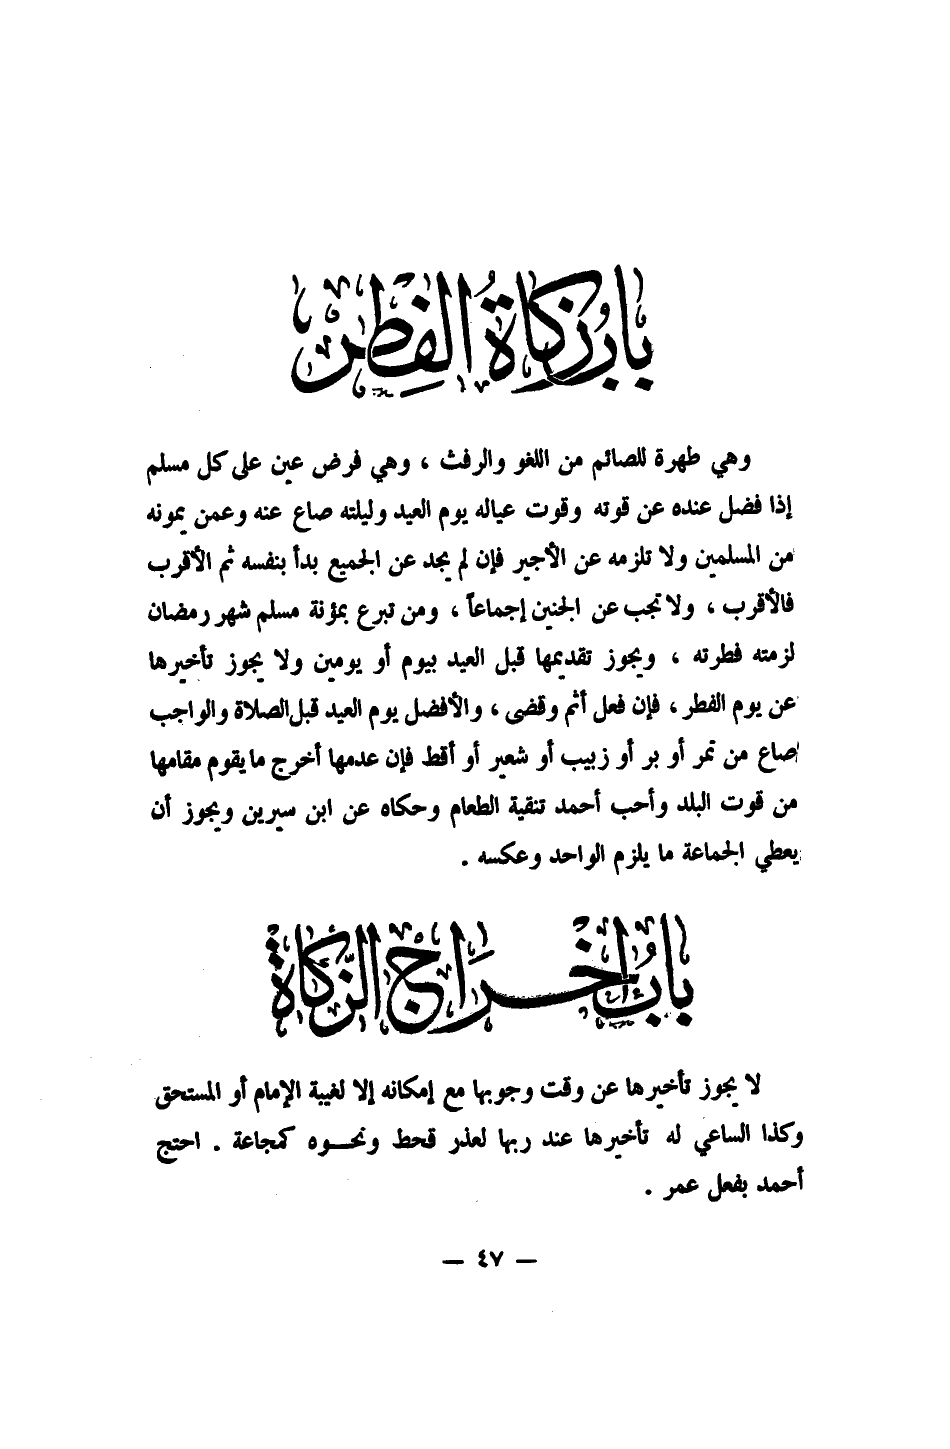 باب زكاة الفطر
وهي طهرة للصائم من اللغو والرفث ، وهي فرض عين على كل مسلم
إذا فضل عنده عن قوته وقوت عياله يوم العيد وليلته صاع عنه وعمن يمونه
من المسلمين ولا تلزمه عن الأجير فإن لم يجد عن الجميع بدأ بنفسه ثم الأقرب
فالأقرب ، ولا تجب عن الجنين إجماعاً ، ومن تبرع بمؤنة مسلم شهر رمضان
لزمته فطرته ، ويجوز تقديمها قبل العيد بيوم أو يومين ولا يجوز تأخيرها
عن يوم الفطر ، فإن فعل أثم وقضى ، والأفضل يوم العيد قبل الصلاة والواجب
صاع من تمر أو بر أو زبيب أو شعير أو أقط فإن عدمها أخرج ما يقوم مقامها
من قوت البلد وأحب أحمد تنقية الطعام وحكاه عن ابن سيرين ويجوز أن
يعطي الجماعة ما يلزم الواحد وعكسه .
باب إخراج الزكاة
لا يجوز تأخيرها عن وقت وجوبها مع إمكانه إلا لغيبة الإمام أو المستحق
وكذا الساعي له تأخيرها عند ربها لعذر قحط ونحوه كمجاعة . احتج
أحمد بفعل عمر .
— ٤٧ —